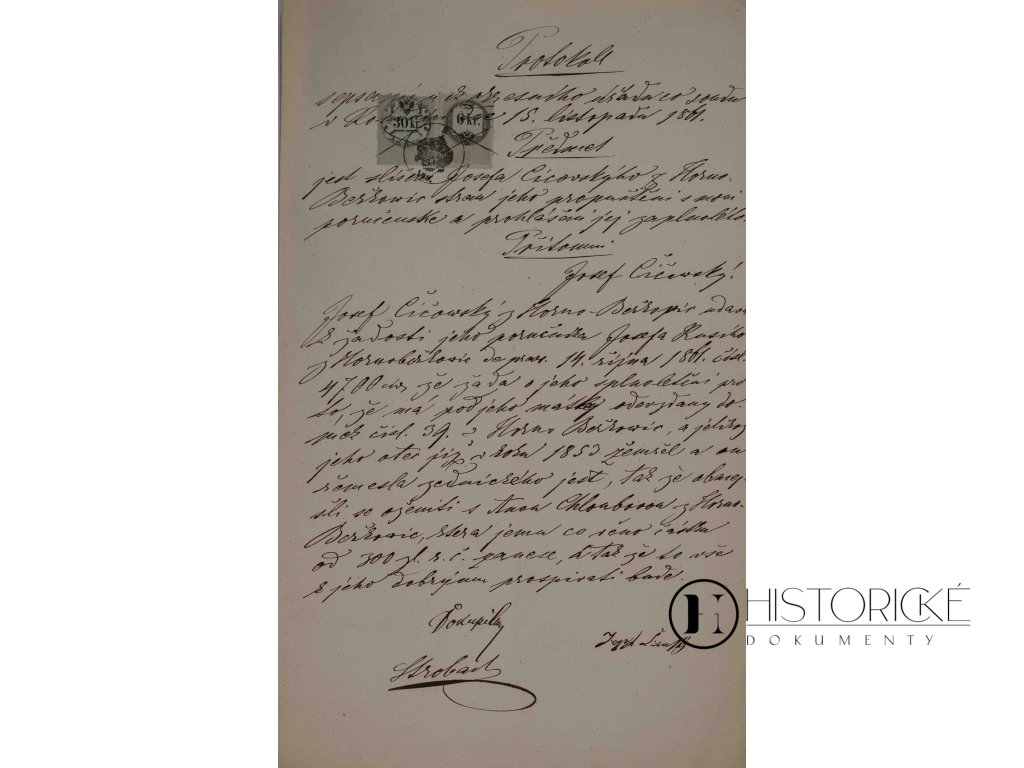 Protokoll
sepsaný u c.k. okresního úřadu co soudu
v 15. listopadu 1861.
50 kr. 6 kr.
Předmet
jest slišení Josefa Cicovskýho z Horno-
Beřkovic stran jeho propuštění s moci
poručenské a prohlášení jej za plnoletého.
Přítomni
Josef Čičovský!
Josef Čičovský z Horno-Beřkovic udává
k žádosti jeho poručníka Josefa
z Hornobeřkovic de praes. 14. října 1861 čísl.
4700 civ, že žádá o jeho splnoletění pro
to, že má po jeho matky odevzdaný do-
mek čísl. 39. v Horno Beřkovic, a jelikož
jeho otec již v roku 1853 zemřel a on
řemesla zednického jest, tak že obmej-
šlí se oženiti s Anna Chloubovou z Horno-
Beřkovic, ktera jemu co věno částku
od 300 zl. r. č. prinese, a tak že to vše
k jeho dobrým prospívati bude.
Strobach
HISTORICKÉ
DOKUMENTY